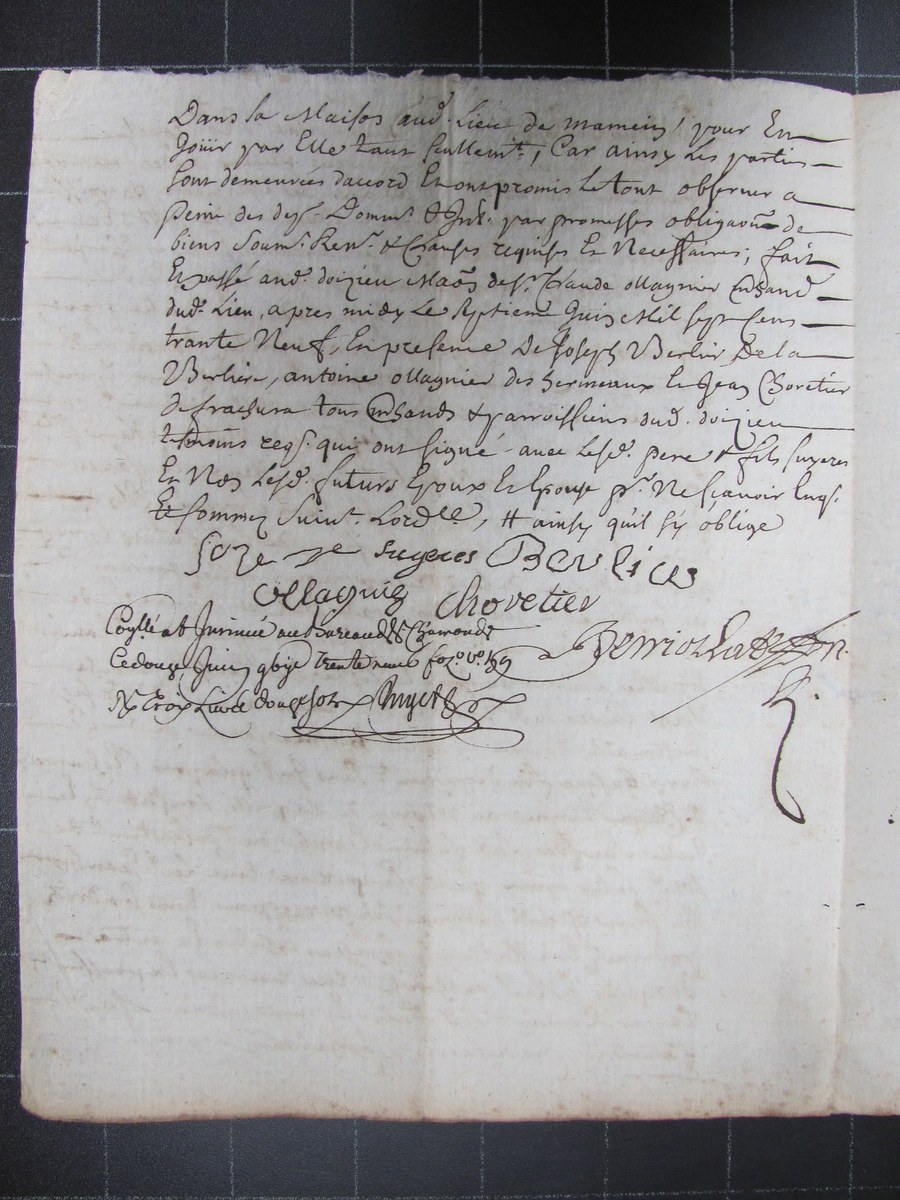 Dans la Maison aud. Lieu de mamein, pour En
Jouir par Elle tant seullemt, Car ainsy les parties
sont demeurées daccord Et ont promis le tout observer a
peine des desp. Dommt & Int. par promesses obligaōn de
biens soumt. Renon. & Clauses requises Et Necessaires; fait
Et passé aud. doizieu Maōn de sr. Claude ollagnier mchand
dud. Lieu, apres midy le septieme Juin Mil sept cens
trante Neuf, En presence De Joseph Berlier De la
Berliere, antoine ollagnier des hermeaux Et Jean Choretier
de frachura tous mchands & parroissiens dud. doizieu
temoins reqs. qui ont signé avec lesd. pere & fils suyeres
Et Non lesd. futurs Epoux Et Epouse pr. Ne sçavoir Enqs.
Et sommez suivt. Lordce, # ainsy quil sy oblige
suyeres Berlier
ollagnier Chovetier
Collé et Jnsinué au Bureau de St Chamond
Ce douze Juin trente neuf fo. vo.
Rx Troix Livre douze sols